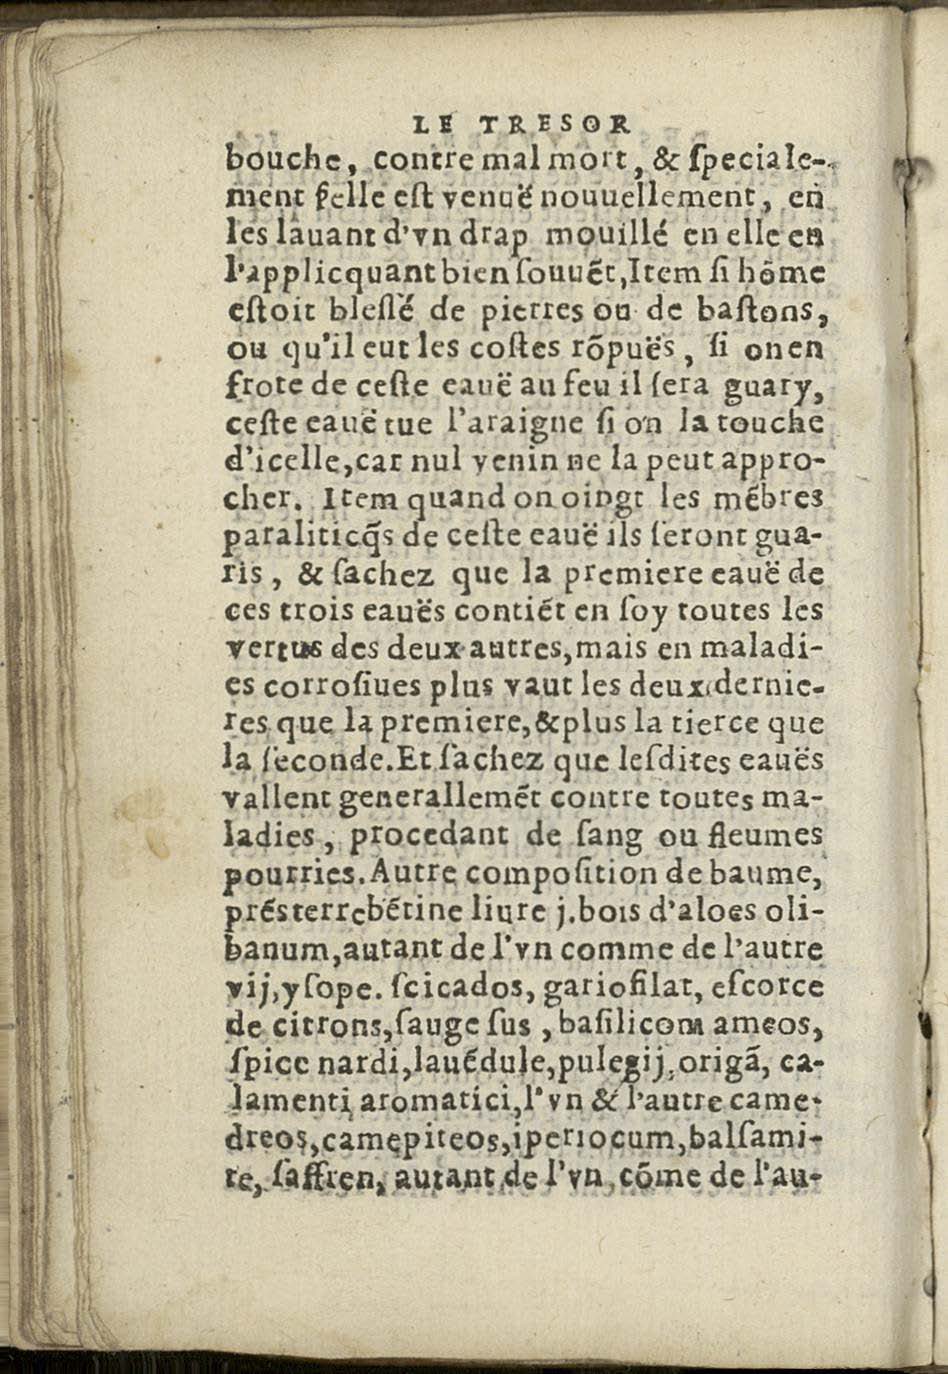 LE TRESOR
bouche, contre mal mort, & ſpeciale-
ment ſelle eſt venuë nouuellement, en
les lauant d'vn drap mouillé en elle en
l'applicquant bien ſouuẽt, Item ſi hõme
eſtoit bleſſé de pierres ou de baſtons,
ou qu'il eut les coſtes rõpuës, ſi on en
frote de ceſte eauë au feu il ſera guary,
ceſte eauë tue l'araigne ſi on la touche
d'icelle, car nul venin ne la peut appro-
cher. Item quand on oingt les mẽbres
paraliticq̃s de ceſte eauë ils ſeront gua-
ris, & ſachez que la premiere eauë de
ces trois eauës contiẽt en ſoy toutes les
vertus des deux autres, mais en maladi-
es corroſiues plus vaut les deux dernie-
res que la premiere, & plus la tierce que
la ſeconde. Et ſachez que leſdites eauës
vallent generallemẽt contre toutes ma-
ladies, procedant de ſang ou fleumes
pourries. Autre compoſition de baume,
prẽs terrebẽtine liure j. bois d'aloes oli-
banum, autant de l'vn comme de l'autre
vij, yſope. ſcicados, gariofilat, eſcorce
de citrons, ſauge ſus, baſilicom ameos,
ſpice nardi, lauẽdule, pulegij, origã, ca-
lamenti aromatici, l'vn & l'autre came-
dreos, camępiteos, iperiocum, balſami-
te, ſaffren, autant de l'vn, cõme de l'au-